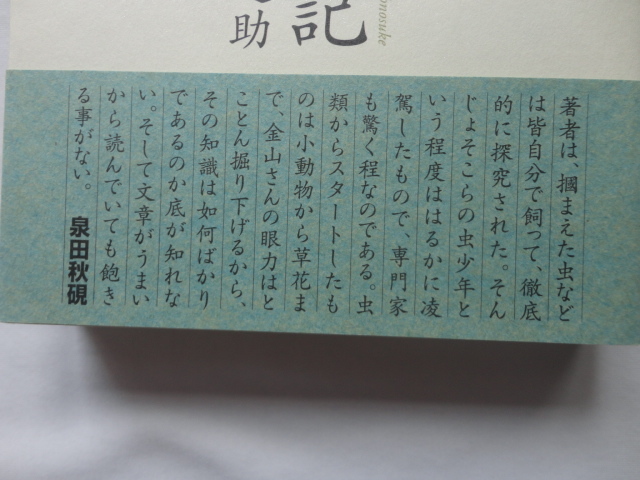 記
助
onosuke
著者は、掴まえた虫など
は皆自分で飼つて、徹底
的に探究された。そん
じょそこらの虫少年と
いう程度ははるかに凌
駕したもので、専門家
も驚く程なのである。虫
類からスタートしたも
のは小動物から草花ま
で、金山さんの眼力はと
ことん掘り下げるから、
その知識は如何ばかり
であるのか底が知れな
い。そして文章がうまい
から読んでいても飽き
る事がない。
泉田秋硯